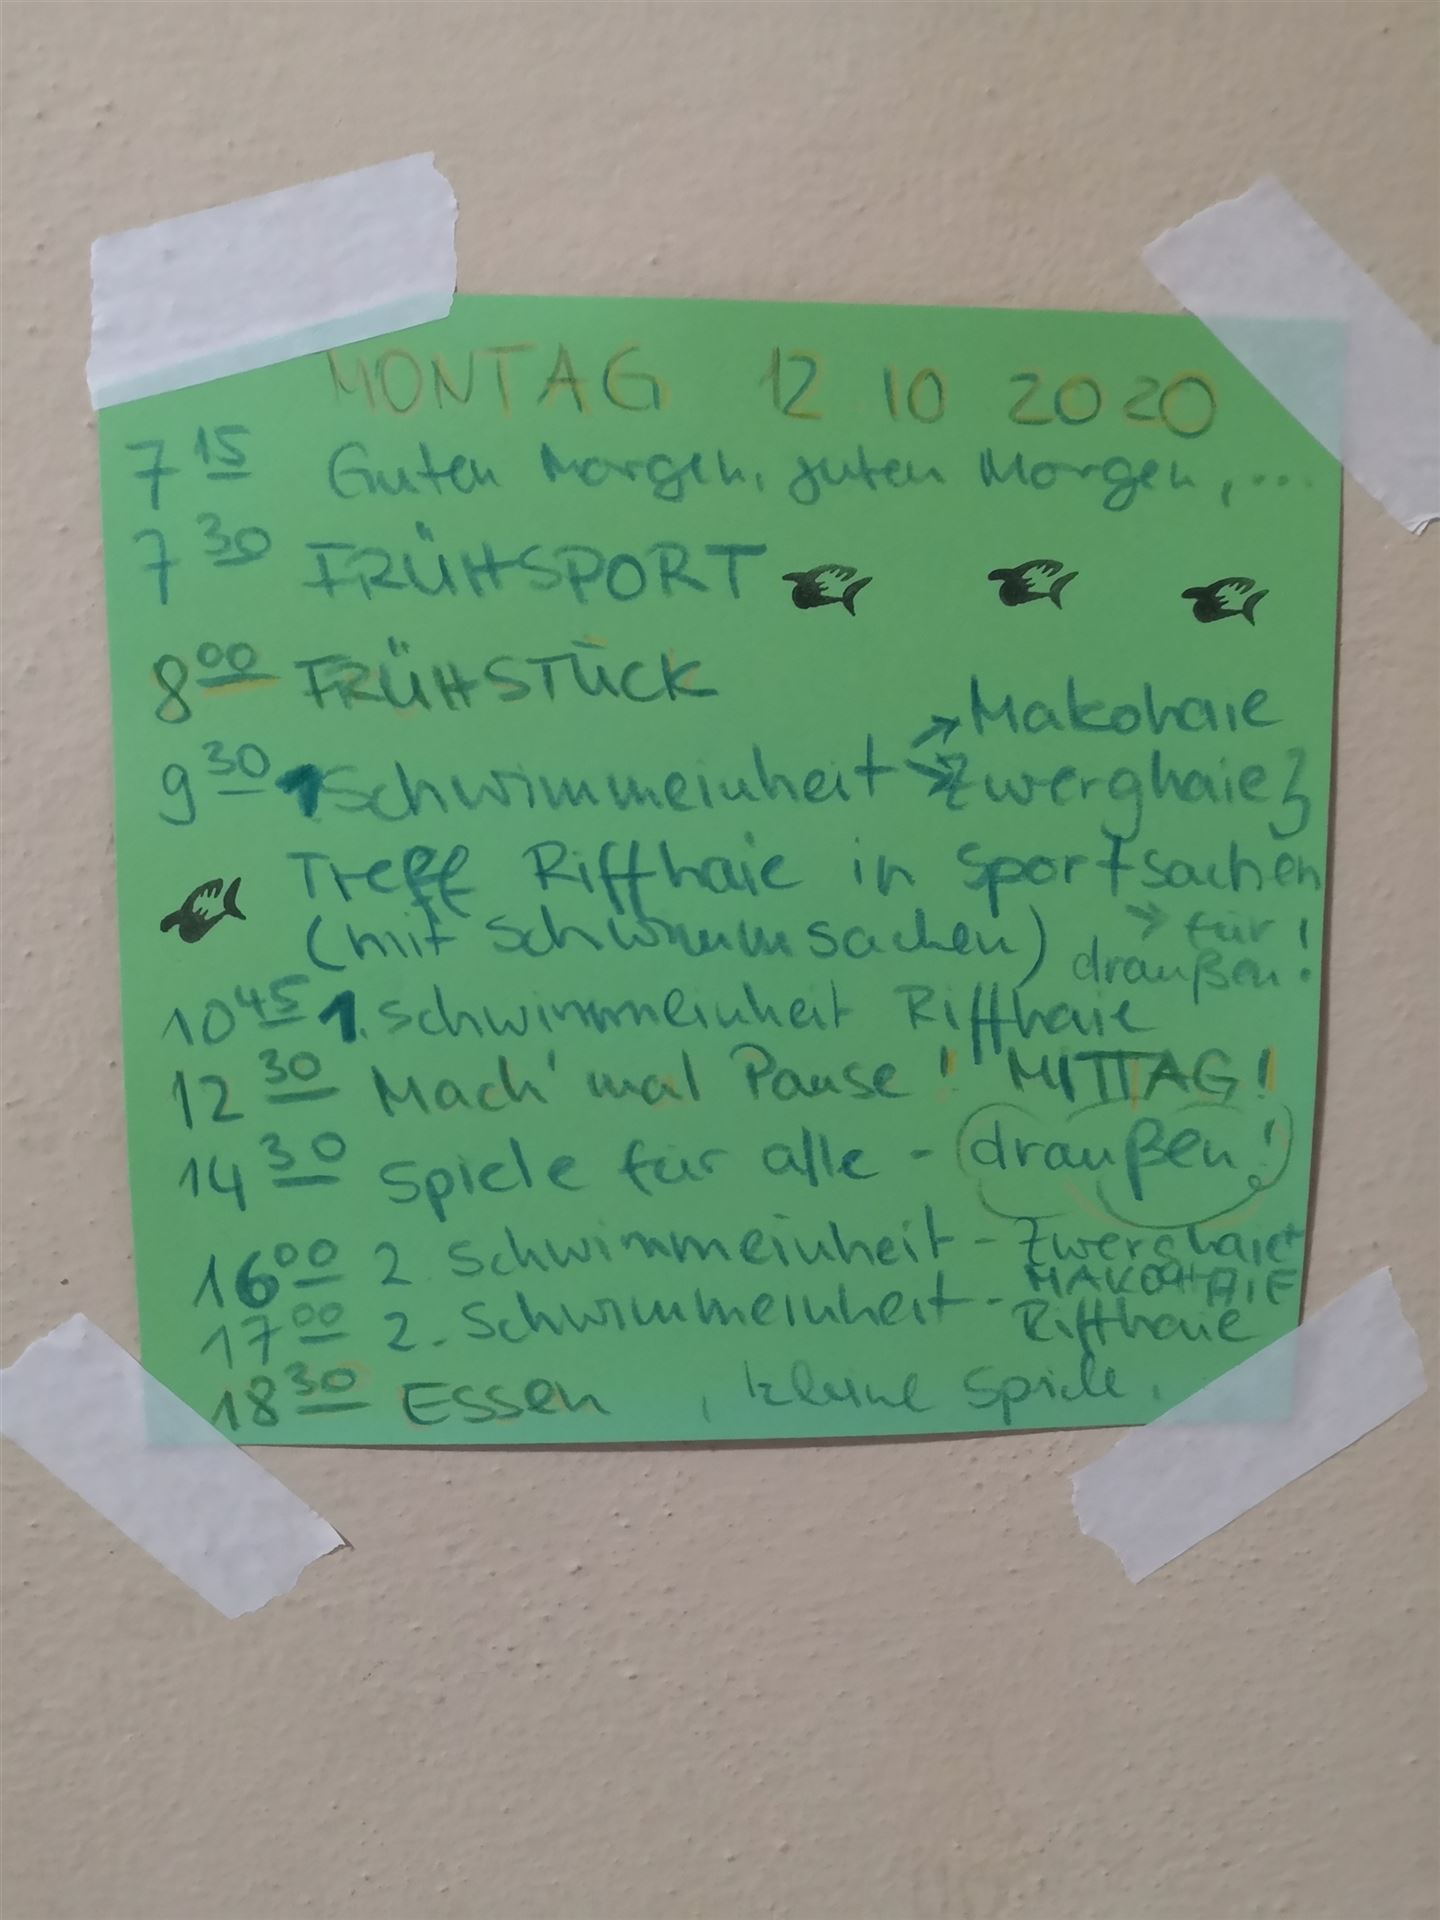 MONTAG 12 10 2020
7 15 Guten Morgen, guten Morgen, ...
7 30 FRÜHSPORT
8 00 FRÜHSTÜCK
9 30 1 Schwimmeinheit → Makohaie
→ Zwerghaie }
Treff Riffhaie in Sportsachen
(mit Schwimmsachen) → für draußen!
10 45 1. Schwimmeinheit Riffhaie
12 30 Mach' mal Pause! MITTAG!
14 30 Spiele für alle - draußen!
16 00 2. Schwimmeinheit - Zwerghaie +
MAKOHAIE
17 00 2. Schwimmeinheit - Riffhaie
18 30 Essen, kleine Spiele.